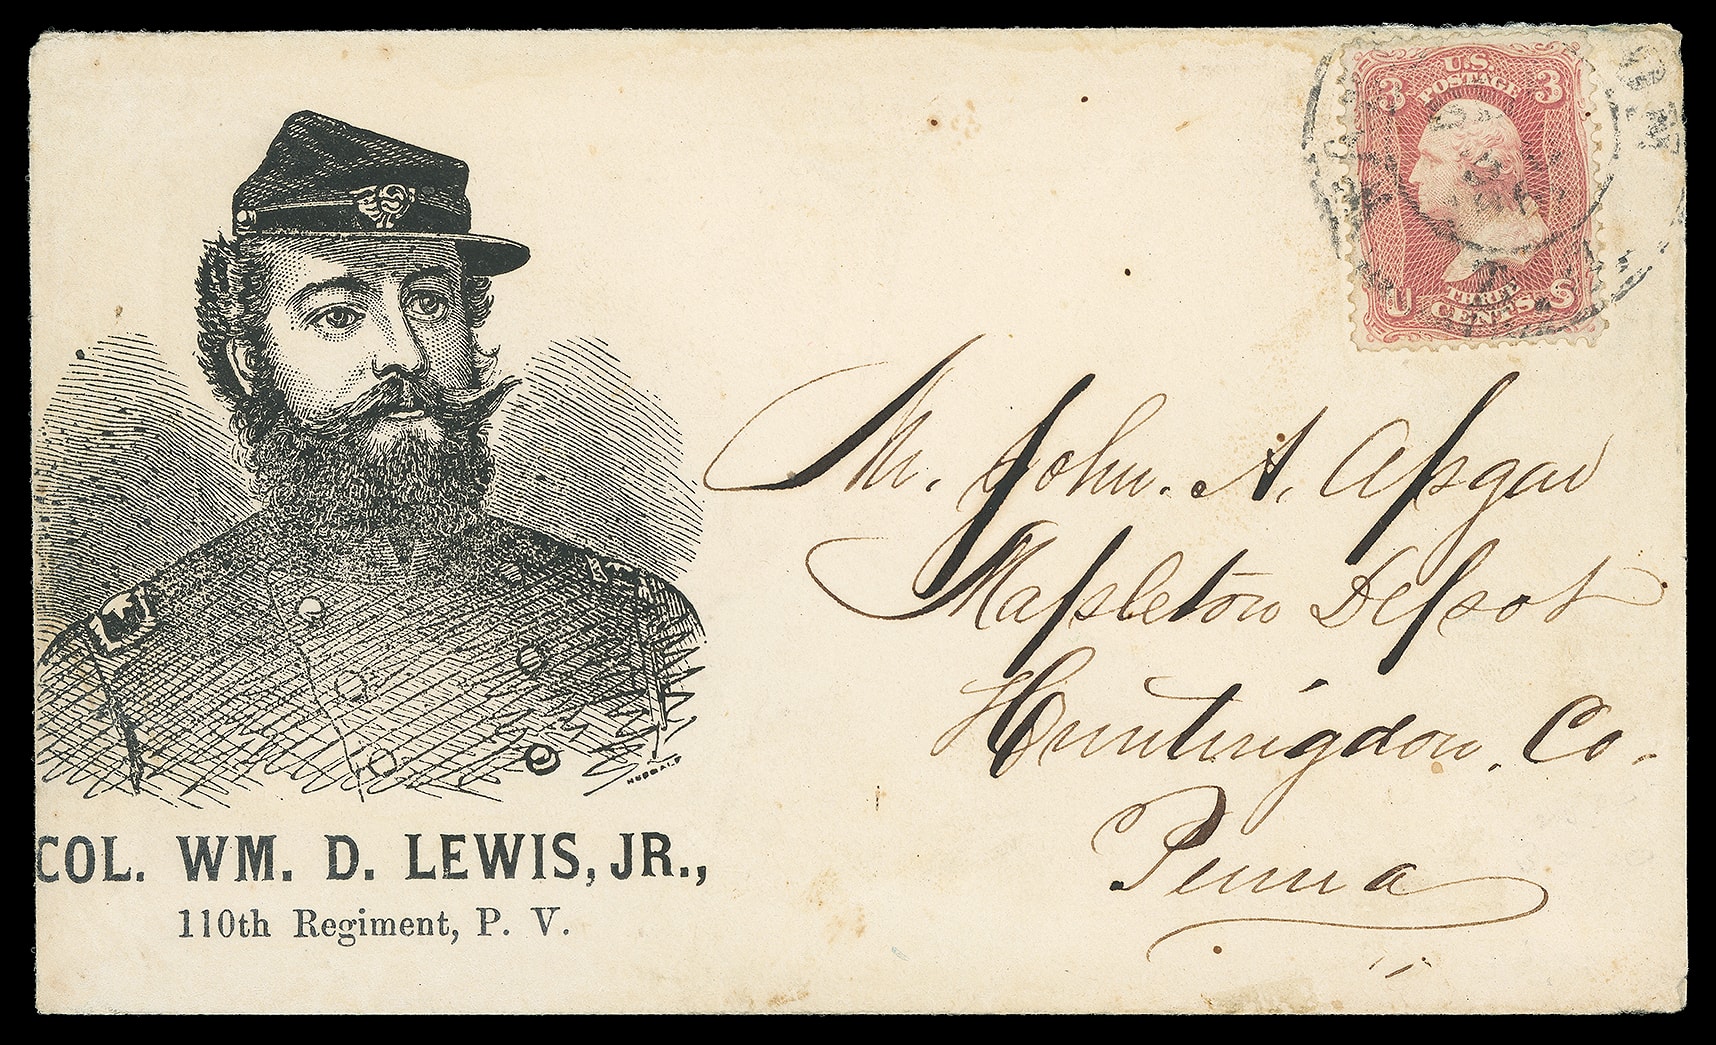 COL. WM. D. LEWIS, JR.,
110th Regiment, P. V.
3 U.S. 3
POSTAGE
U THREE S
CENTS
Mr. John. A. Apgar
Mapleton Depot
Huntingdon, Co.
Penna